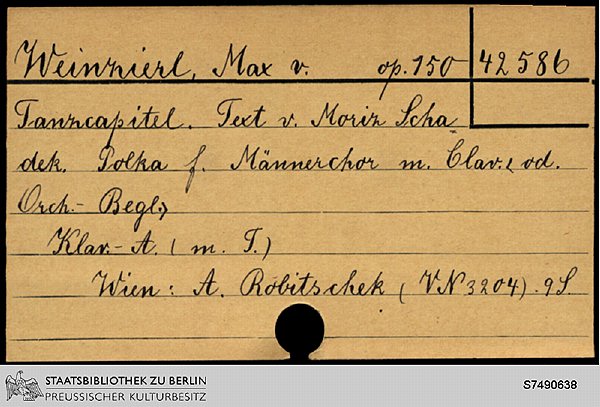 Weinzierl, Max v. op. 150 42586
Tanzcapitel. Text v. Moriz Scha-
dek. Polka f. Männerchor m. Clav.( od.
Orch.- Begl.)
Klav.- A. ( m. T.)
Wien: A. Robitschek ( VN 3204). 9 S.
STAATSBIBLIOTHEK ZU BERLIN
PREUSSISCHER KULTURBESITZ
S7490638